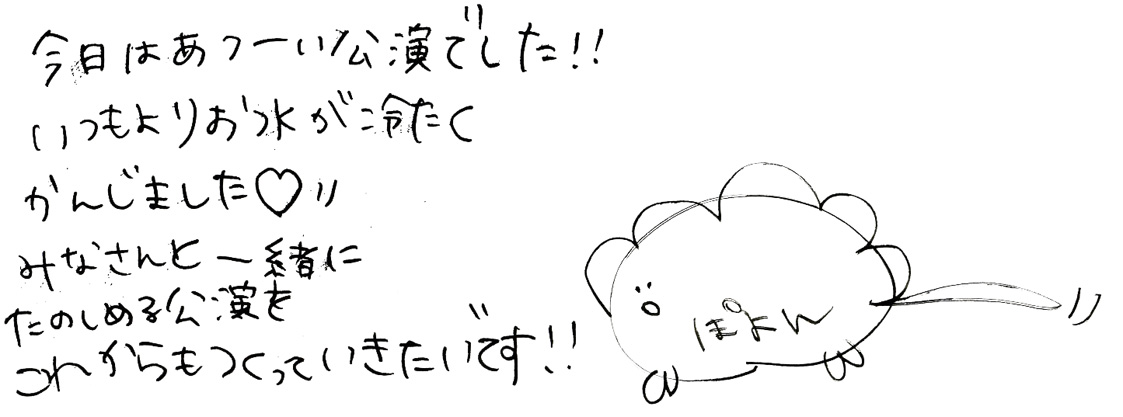 今日はあつーい公演でした!!
いつもよりお水が冷たく
かんじました♡
みなさんと一緒に
たのしめる公演を
これからもつくっていきたいです!!
ぽよん